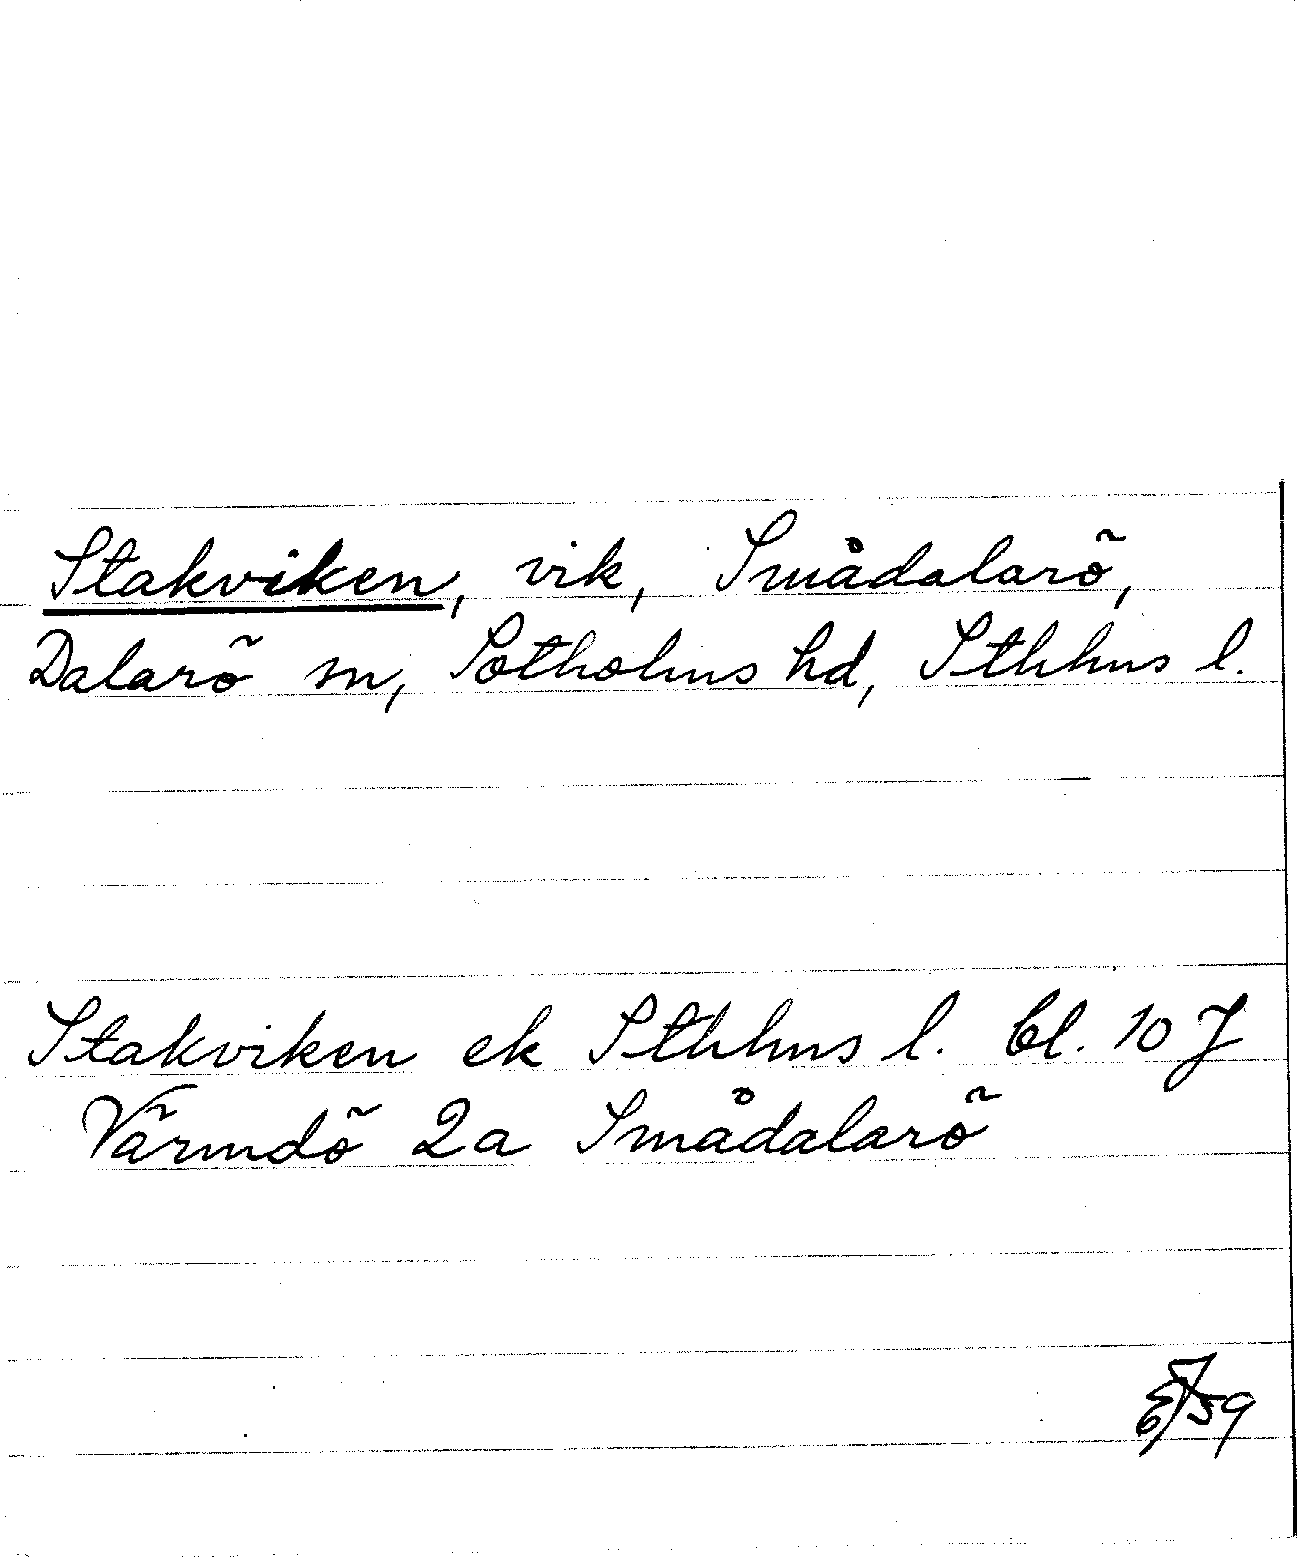 Stakviken, vik, Smådalarö,
Dalarö sn, Sotholms hd, Sthlms l.
Stakviken ek Sthlms l. bl. 10 J
Värmdö 2a Smådalarö
59